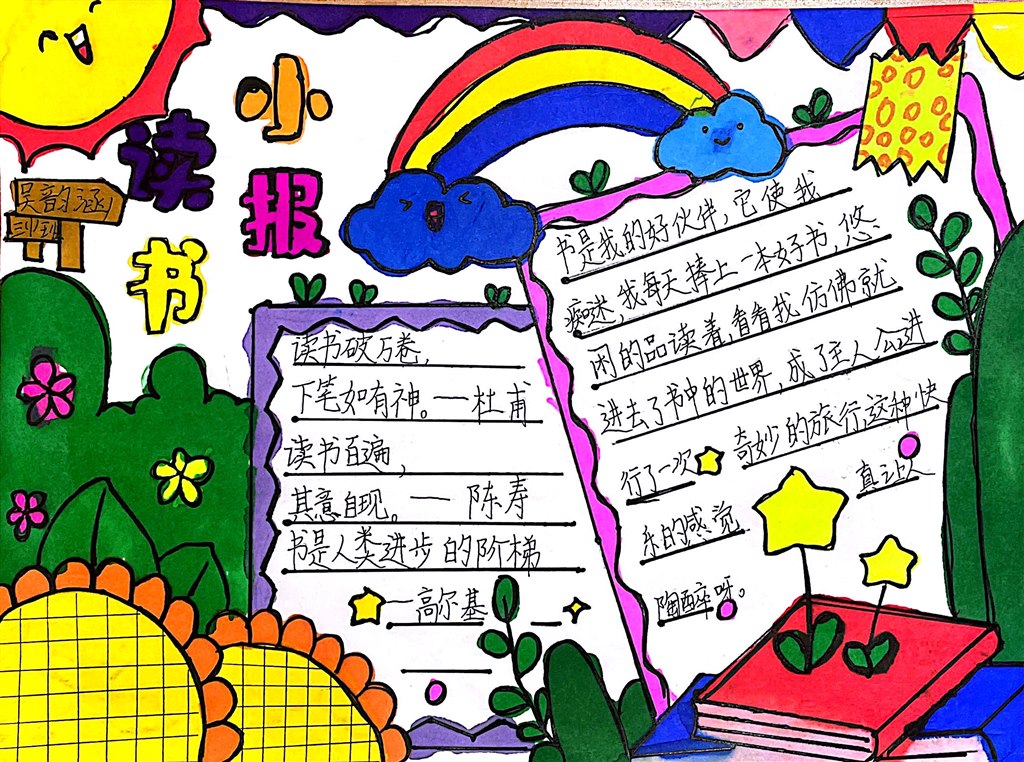 小
读
报
书
吴韵涵
读书破万卷，
下笔如有神。—杜甫
读书百遍，
其意自现。— 陈寿
书是人类进步的阶梯
—高尔基
书是我的好伙伴，它使我
痴迷，我每天捧上一本好书，悠
闲的品读着，看看我仿佛就
进去了书中的世界，成了主人公进
行了一次 奇妙的旅行，这种快
乐的感觉 真让人
陶醉呀。